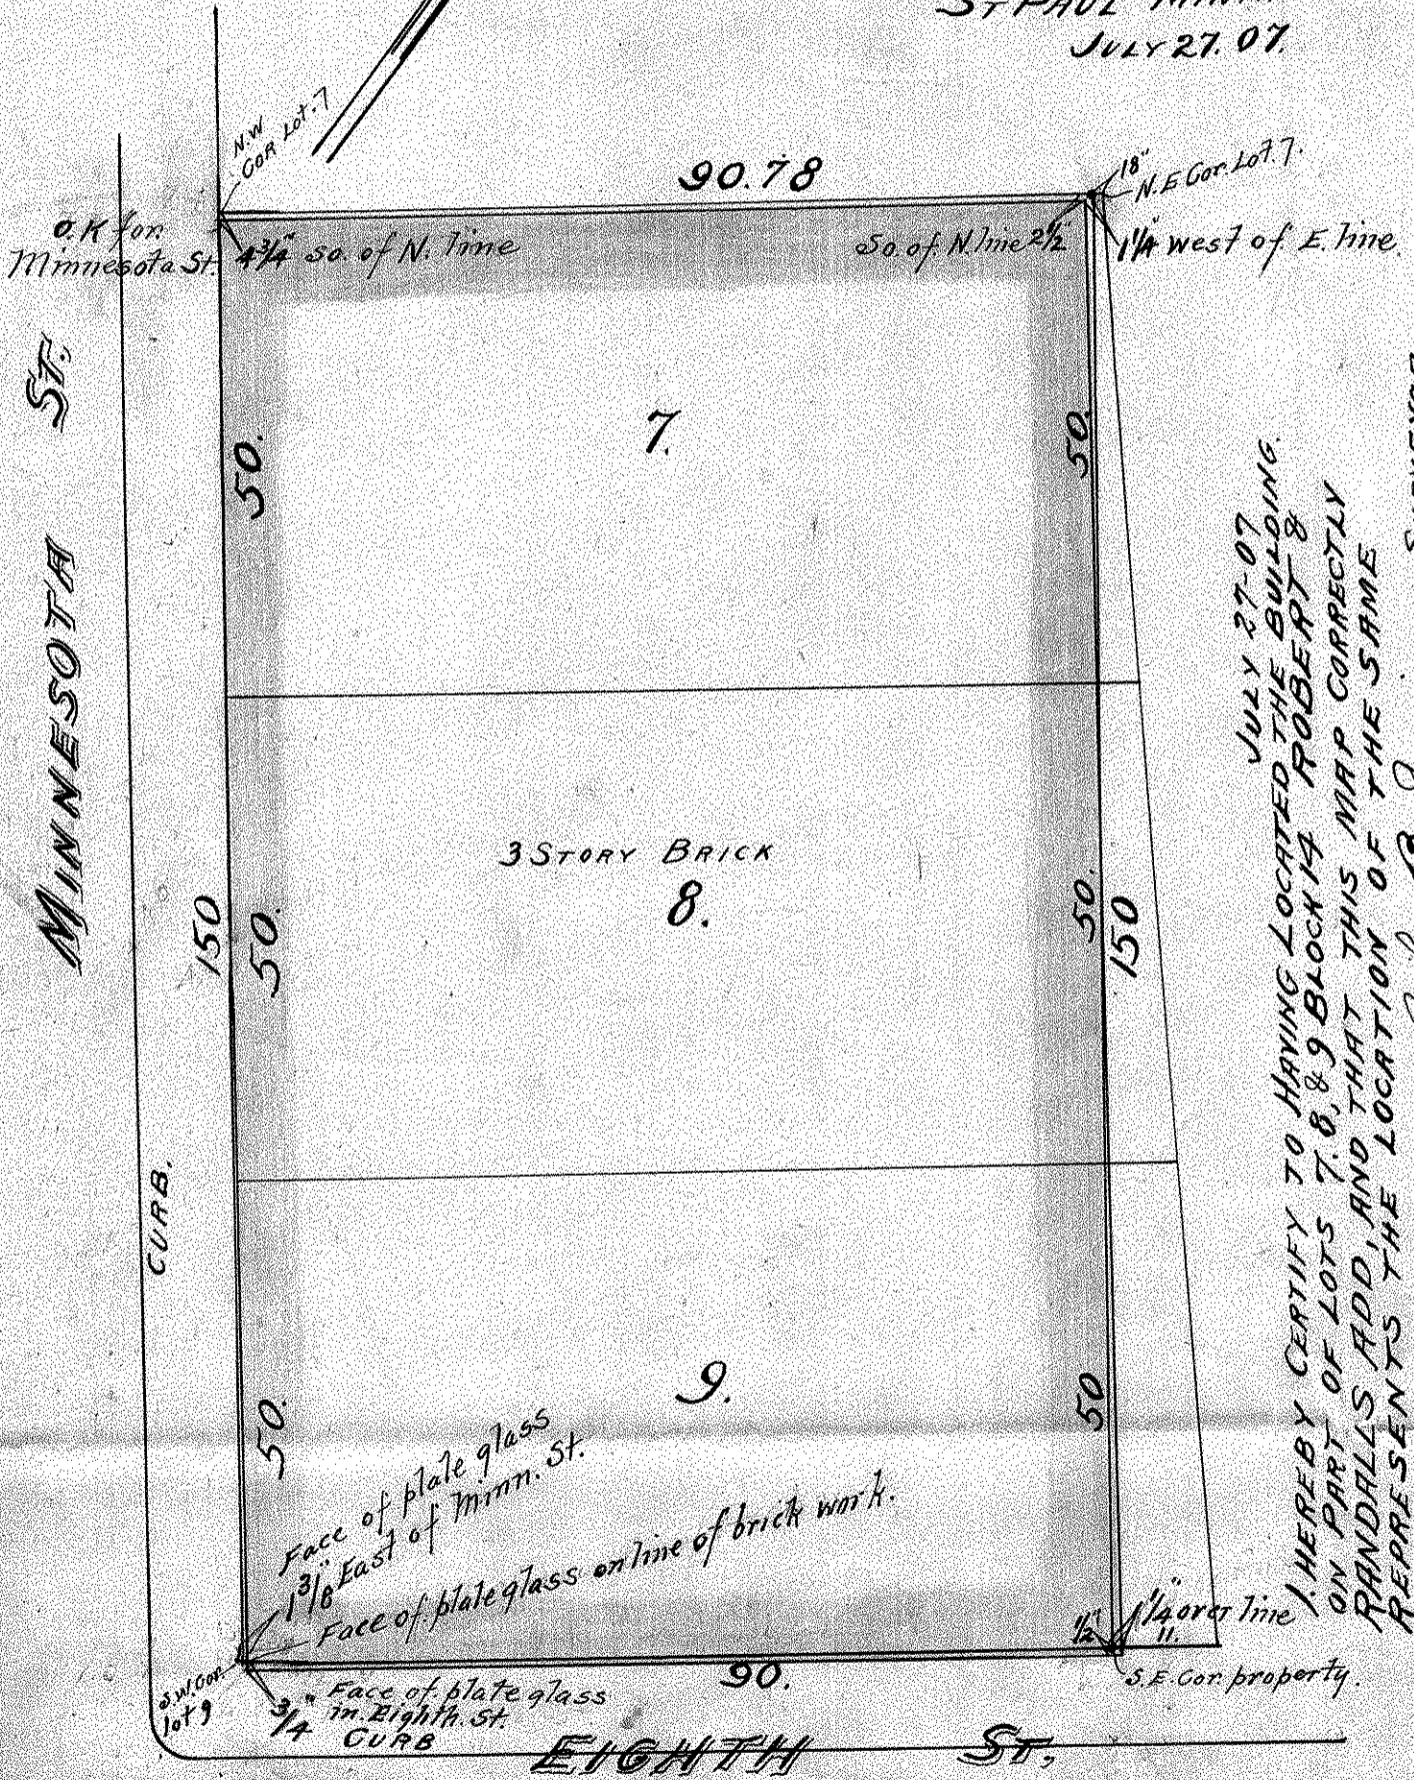 ST PAUL MINN.
JULY 27. 07.
N.W
COR Lot. 7
90.78
18"
N.E Cor. Lot. 7.
O.K for.
Minnesota St.
4 3/4" So. of N. line
So. of N. line 2 1/2"
1 1/4" West of E. line.
MINNESOTA ST.
7.
50.
50.
3 STORY BRICK
8.
150
50.
50.
150
CURB.
9.
50.
50
Face of plate glass
1 3/8" East of Minn. St.
Face of plate glass on line of brick work.
1/2"
1 1/4" over line
11.
S.W. Cor
lot 9
90.
S.E. Cor. property.
3/4" Face of plate glass
in Eighth. St.
CURB
EIGHTH ST.
JULY 27-07
I HEREBY CERTIFY TO HAVING LOCATED THE BUILDING.
ON PART OF LOTS 7. 8, & 9 BLOCK 14 ROBERT &
RANDALLS ADD, AND THAT THIS MAP CORRECTLY
REPRESENTS THE LOCATION OF THE SAME